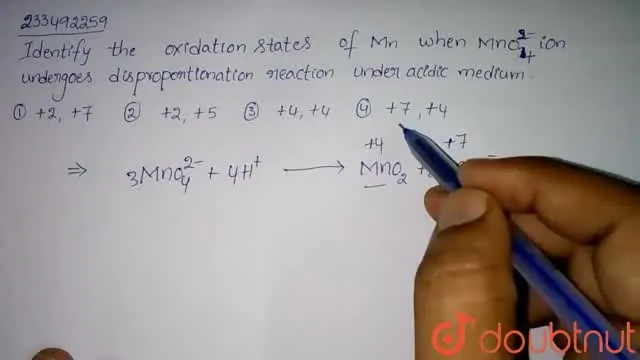 233492259
Identify the oxidation states of Mn when MnO₄²⁻ ion
undergoes disproportionation reaction under acidic medium.
① +2, +7 ② +2, +5 ③ +4, +4 ④ +7, +4
+4 +7
⇒ 3MnO₄²⁻ + 4H⁺ ⟶ MnO₂ +
doubtnut